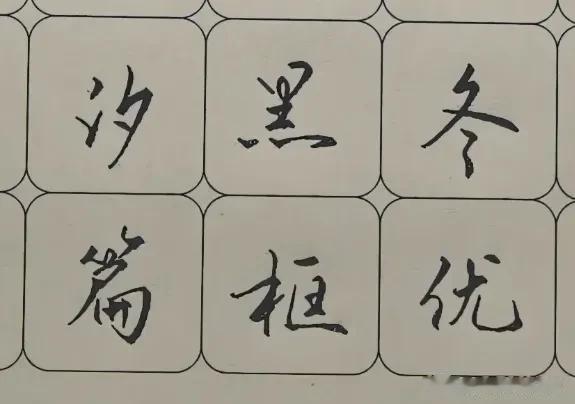 汐黑冬
篇框优